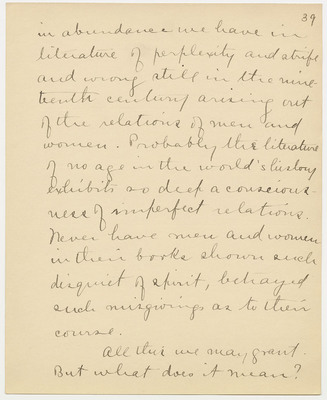 39
in abundance we have in
literature of perplexity and strife
and wrong still in the nine-
teenth century arising out
of the relations of men and
women. Probably the literature
of no age in the world's history
exhibits so deep a conscious-
ness of imperfect relations.
Never have men and women
in their books shown such
disquiet of spirit, betrayed
such misgivings as to their
course.
All this we may grant.
But what does it mean?